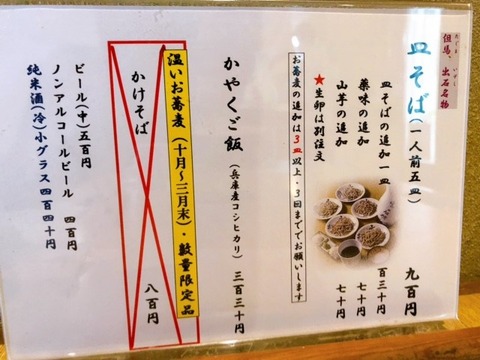 たじま　いずし
但馬、出石名物
皿そば（一人前五皿）　九百円
皿そばの追加一皿　百三十円
薬味の追加　七十円
山芋の追加　七十円
★生卵は別注文
お蕎麦の追加は3皿以上・3回まででお願いします
かやくご飯（兵庫産コシヒカリ）　三百三十円
温いお蕎麦（十月～三月末）・数量限定品
かけそば　八百円
ビール（中）五百円
ノンアルコールビール　四百円
純米酒（冷）小グラス四百四十円